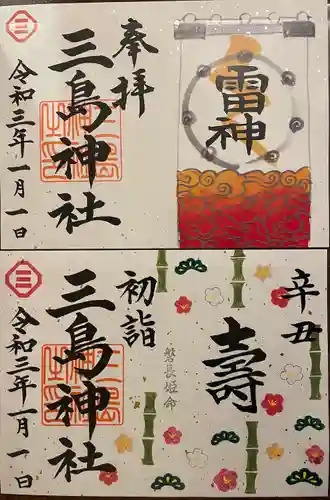 奉拝
三島神社
令和三年一月一日
雷神
辛丑
壽
磐長姫命
初詣
三島神社
令和三年一月一日